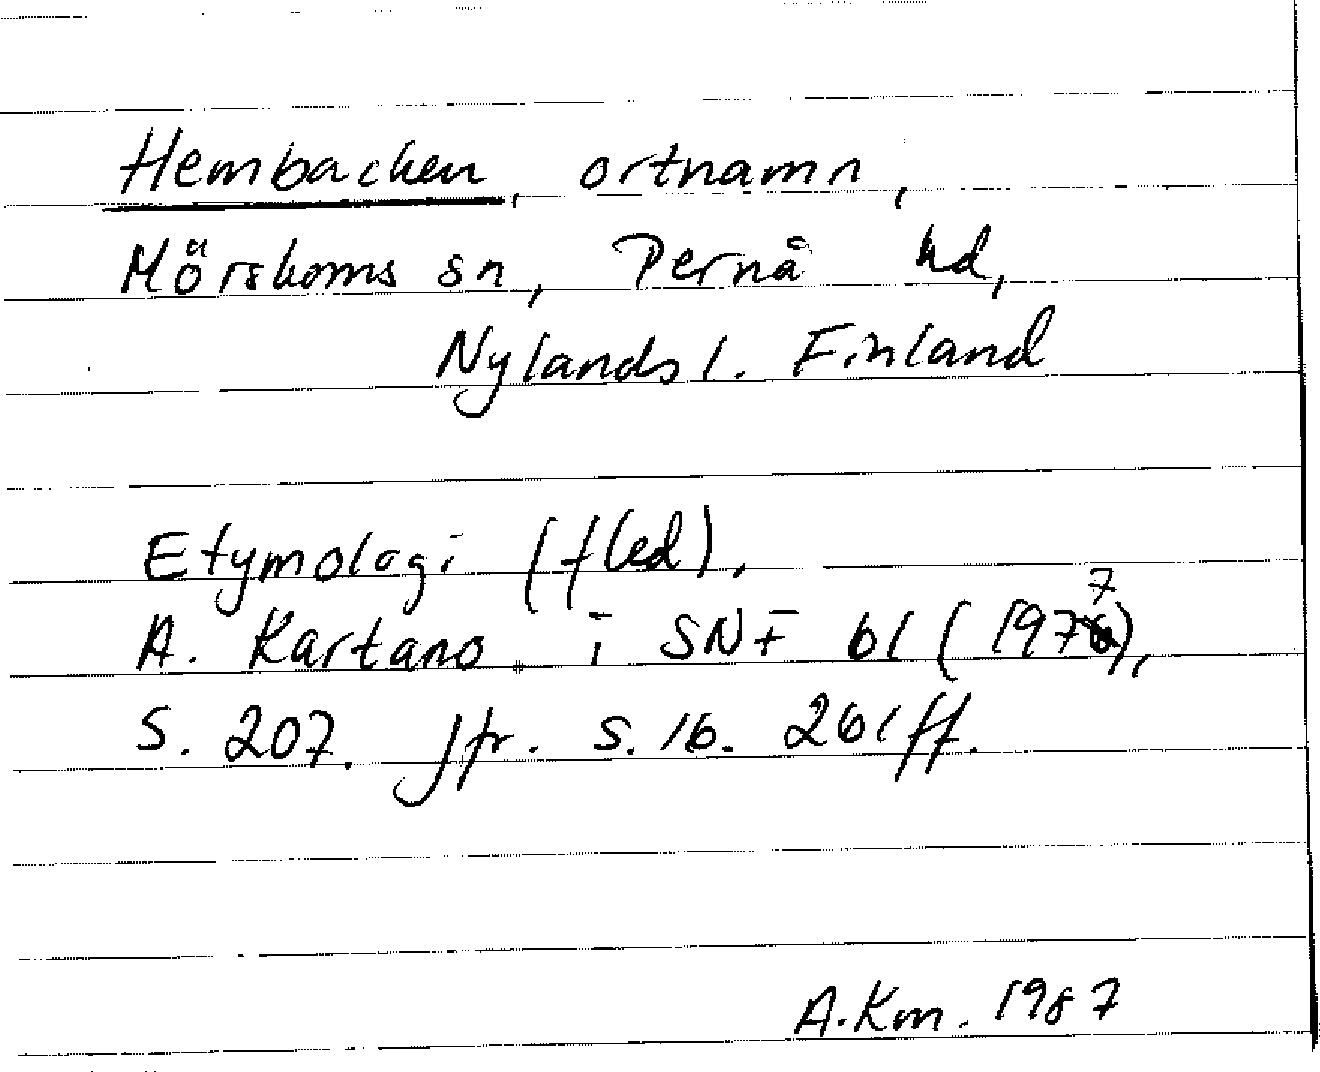 Hembacken, ortnamn,
Mörskoms sn, Pernå hd,
Nylands l. Finland
Etymologi (fled),
A. Kartano i SNF 61 (1977),
S. 207. Jfr. s. ib. 261ff.
A.Km. 1987